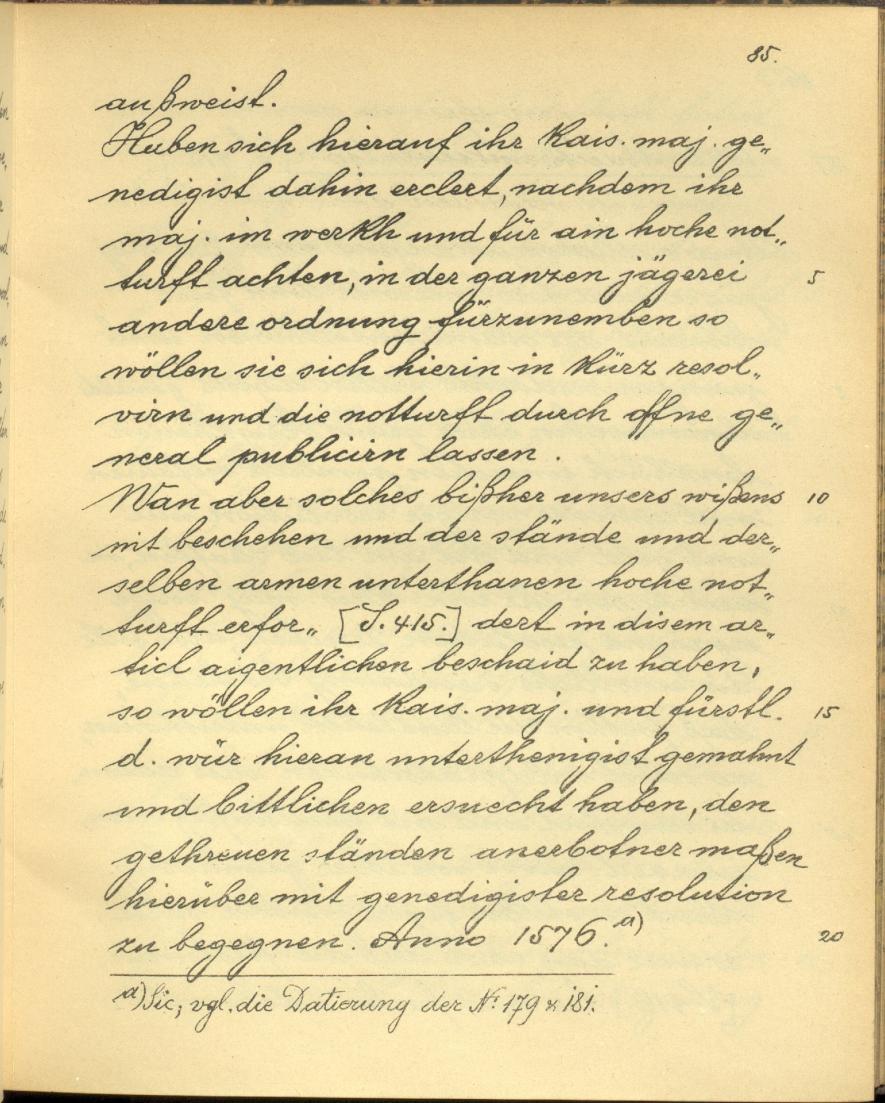 85.
außweist.
Haben sich hierauf ihr Kais. maj. ge„
nedigist dahin erclert, nachdem ihr
maj. im werkh und für ain hoche not„
turft achten, in der ganzen jägerei 5
andere ordnung fürzunemben so
wöllen sie sich hierin in Kürz resol„
virn und die notturft durch offne ge„
neral publicirn lassen.
Wan aber solches bißher unsers wißens 10
nit beschehen und der stände und der„
selben armen unterthanen hoche not„
turft erfor„ [S. 415.] dert in disem ar„
ticl aigentlichen beschaid zu haben,
so wöllen ihr Kais. maj. und fürstl. 15
d. wür hieran unterthenigist gemahnt
und bittlichen ersuecht haben, den
gethreuen ständen anerbotner maßen
hierüber mit genedigister resolution
zu begegnen. Anno 1576.a) 20
a) Sic; vgl. die Datierung der No. 179 & 181.